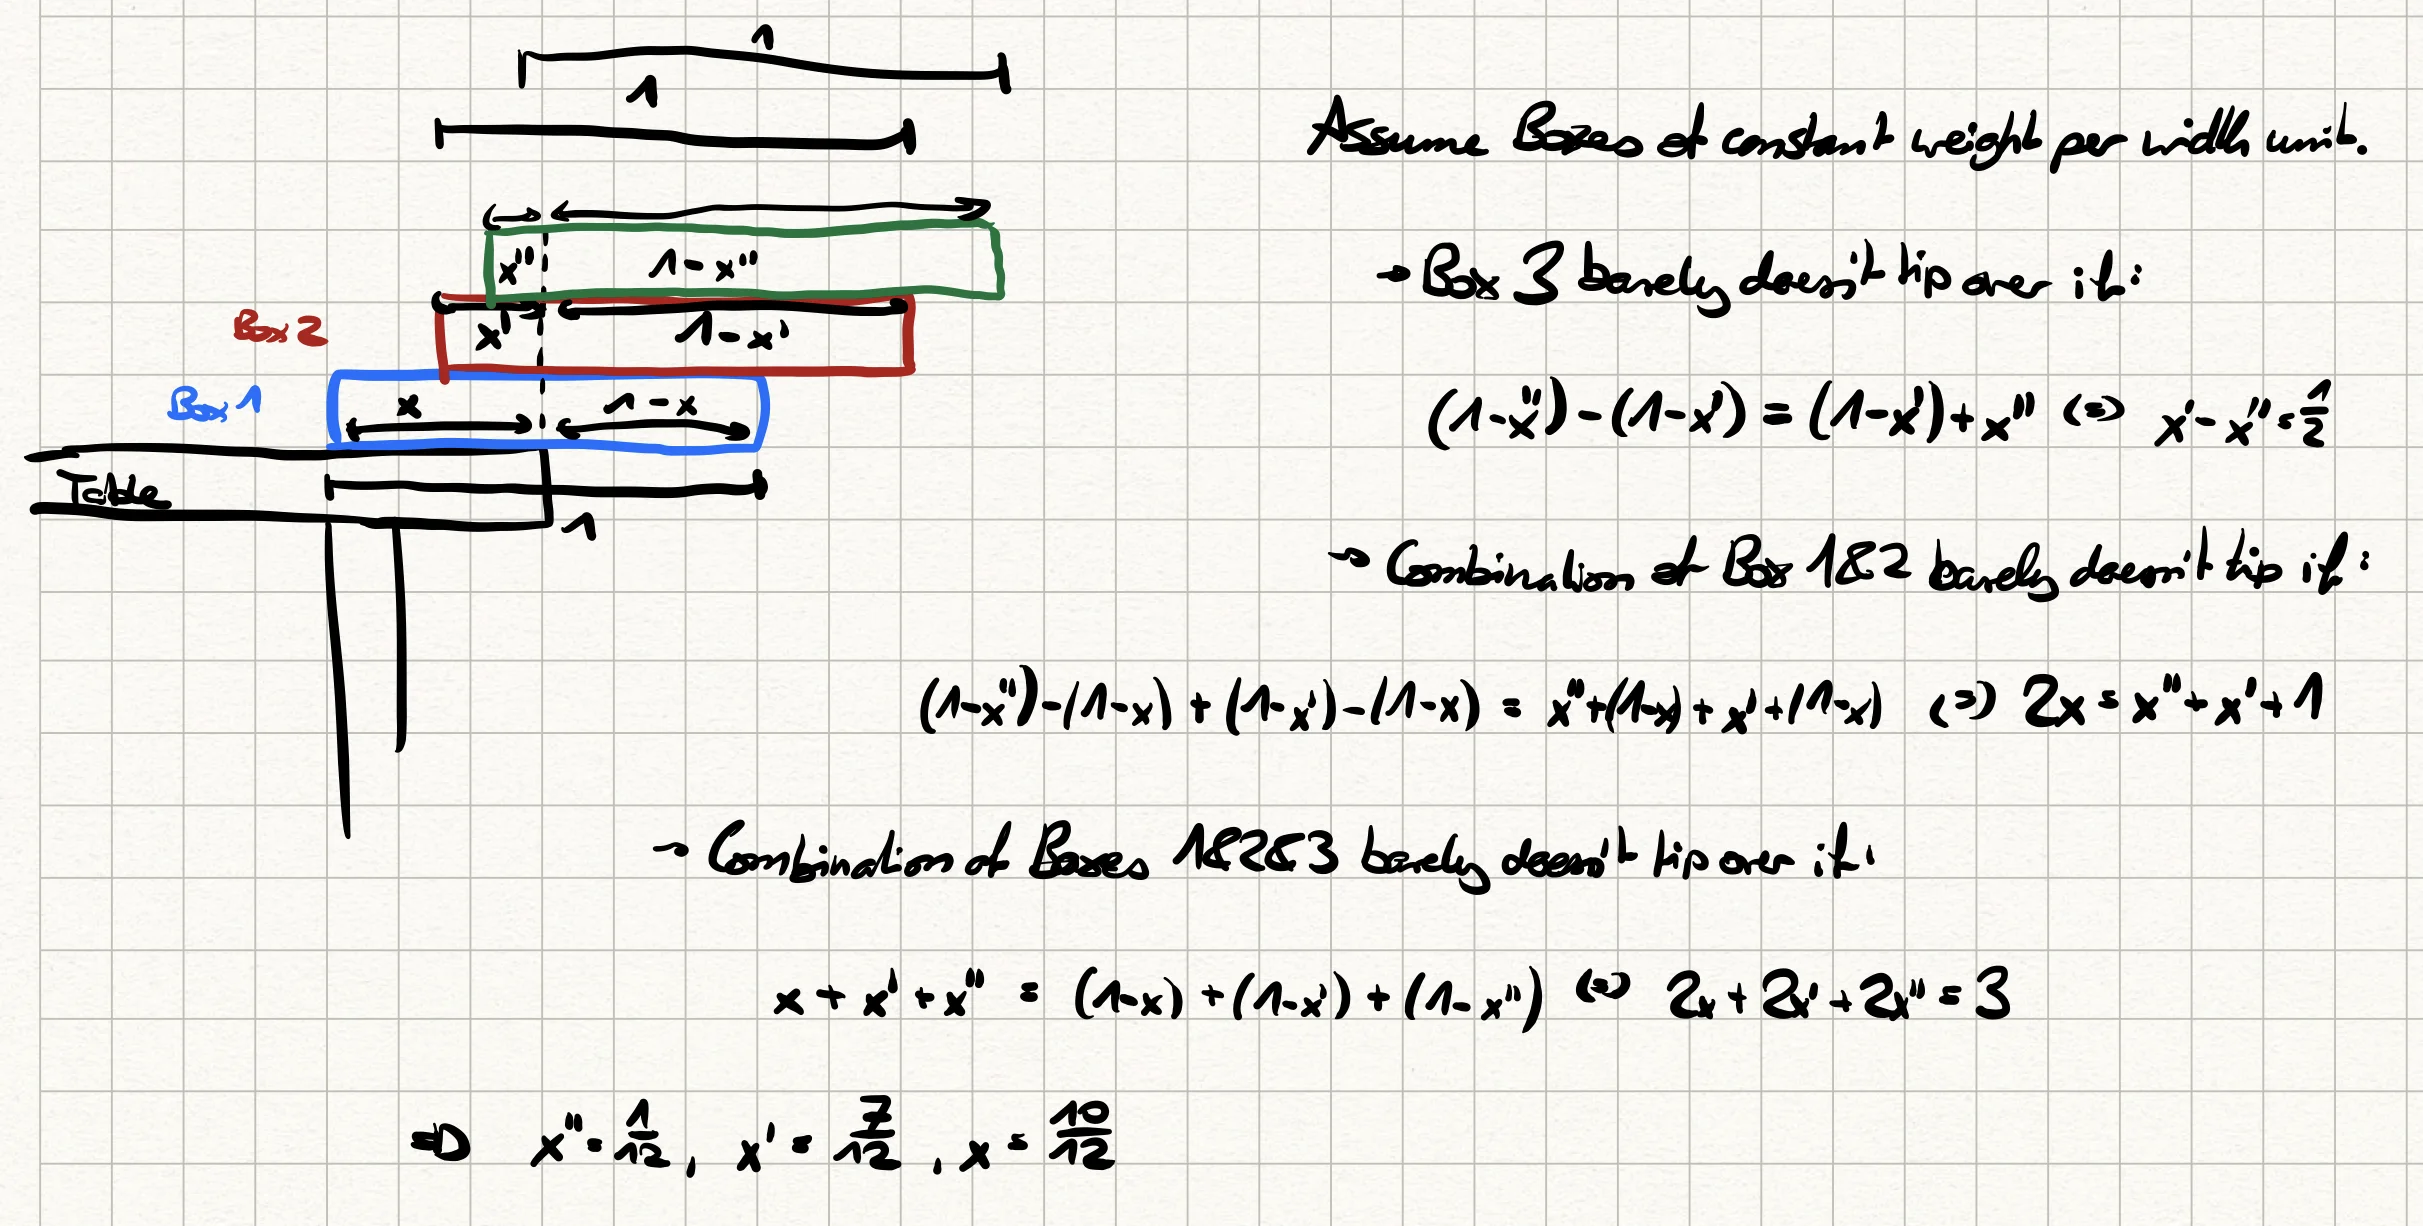 1
1
Assume Boxes of constant weight per width unit.
x'' 1-x''
→ Box 3 barely doesn't tip over if:
Box 2 x' 1-x'
Box 1 x 1-x
(1-x'')-(1-x') = (1-x')+x'' (=) x'-x''=1/2
Table
1
→ Combination of Box 1&2 barely doesn't tip if:
(1-x'')-(1-x)+(1-x')-(1-x) = x''+(1-x)+x'+(1-x) (=) 2x=x''+x'+1
→ Combination of Boxes 1&2&3 barely doesn't tip over if:
x+x'+x'' = (1-x)+(1-x')+(1-x'') (=) 2x+2x'+2x''=3
⇒ x''=1/12, x'=7/12, x=10/12